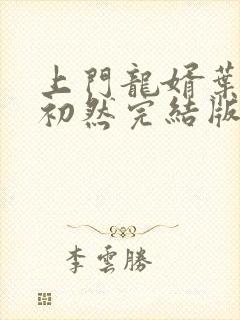 上門龍婿葉
初然完結版
李雲勝